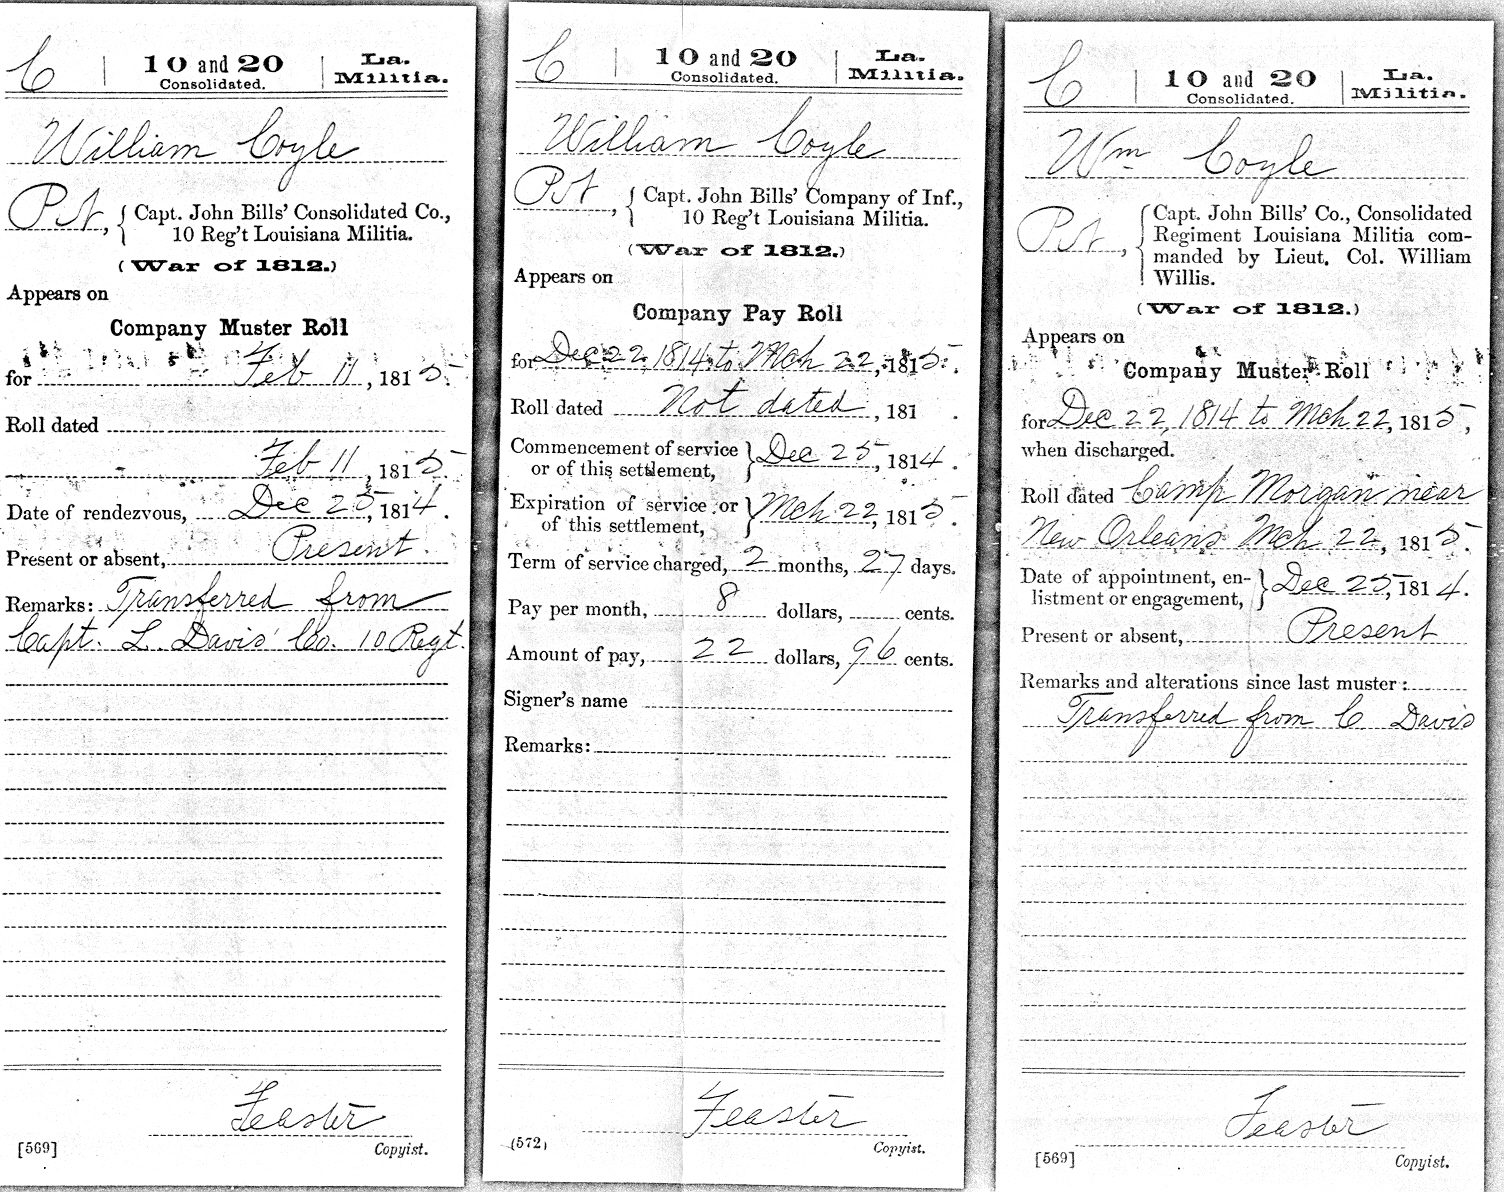 C 10 and 20 La.
Consolidated. Militia.
William Coyle
Pvt, { Capt. John Bills' Consolidated Co.,
10 Reg't Louisiana Militia.
(War of 1812.)
Appears on
Company Muster Roll
for Feb 11, 1815.
Roll dated
Feb 11, 1815.
Date of rendezvous, Dec 25, 1814.
Present or absent, Present.
Remarks: Transferred from
Capt. L. Davis' Co. 10 Regt.
Feaster
[569] Copyist.
C 10 and 20 La.
Consolidated. Militia.
William Coyle
Pvt, { Capt. John Bills' Company of Inf.,
10 Reg't Louisiana Militia.
(War of 1812.)
Appears on
Company Pay Roll
for Dec 22, 1814 to Mch 22, 1815.
Roll dated Not dated, 181 .
Commencement of service
or of this settlement, } Dec 25, 1814.
Expiration of service or
of this settlement, } Mch 22, 1815.
Term of service charged, 2 months, 27 days.
Pay per month, 8 dollars, cents.
Amount of pay, 22 dollars, 96 cents.
Signer's name
Remarks:
Feaster
(572) Copyist.
C 10 and 20 La.
Consolidated. Militia.
Wm Coyle
Pvt, { Capt. John Bills' Co., Consolidated
Regiment Louisiana Militia com-
manded by Lieut. Col. William
Willis.
(War of 1812.)
Appears on
Company Muster Roll
for Dec 22, 1814 to Mch 22, 1815,
when discharged.
Roll dated Camp Morgan near
New Orleans Mch 22, 1815.
Date of appointment, en-
listment or engagement, } Dec 25, 1814.
Present or absent, Present
Remarks and alterations since last muster:
Transferred from C Davis
Feaster
[569] Copyist.